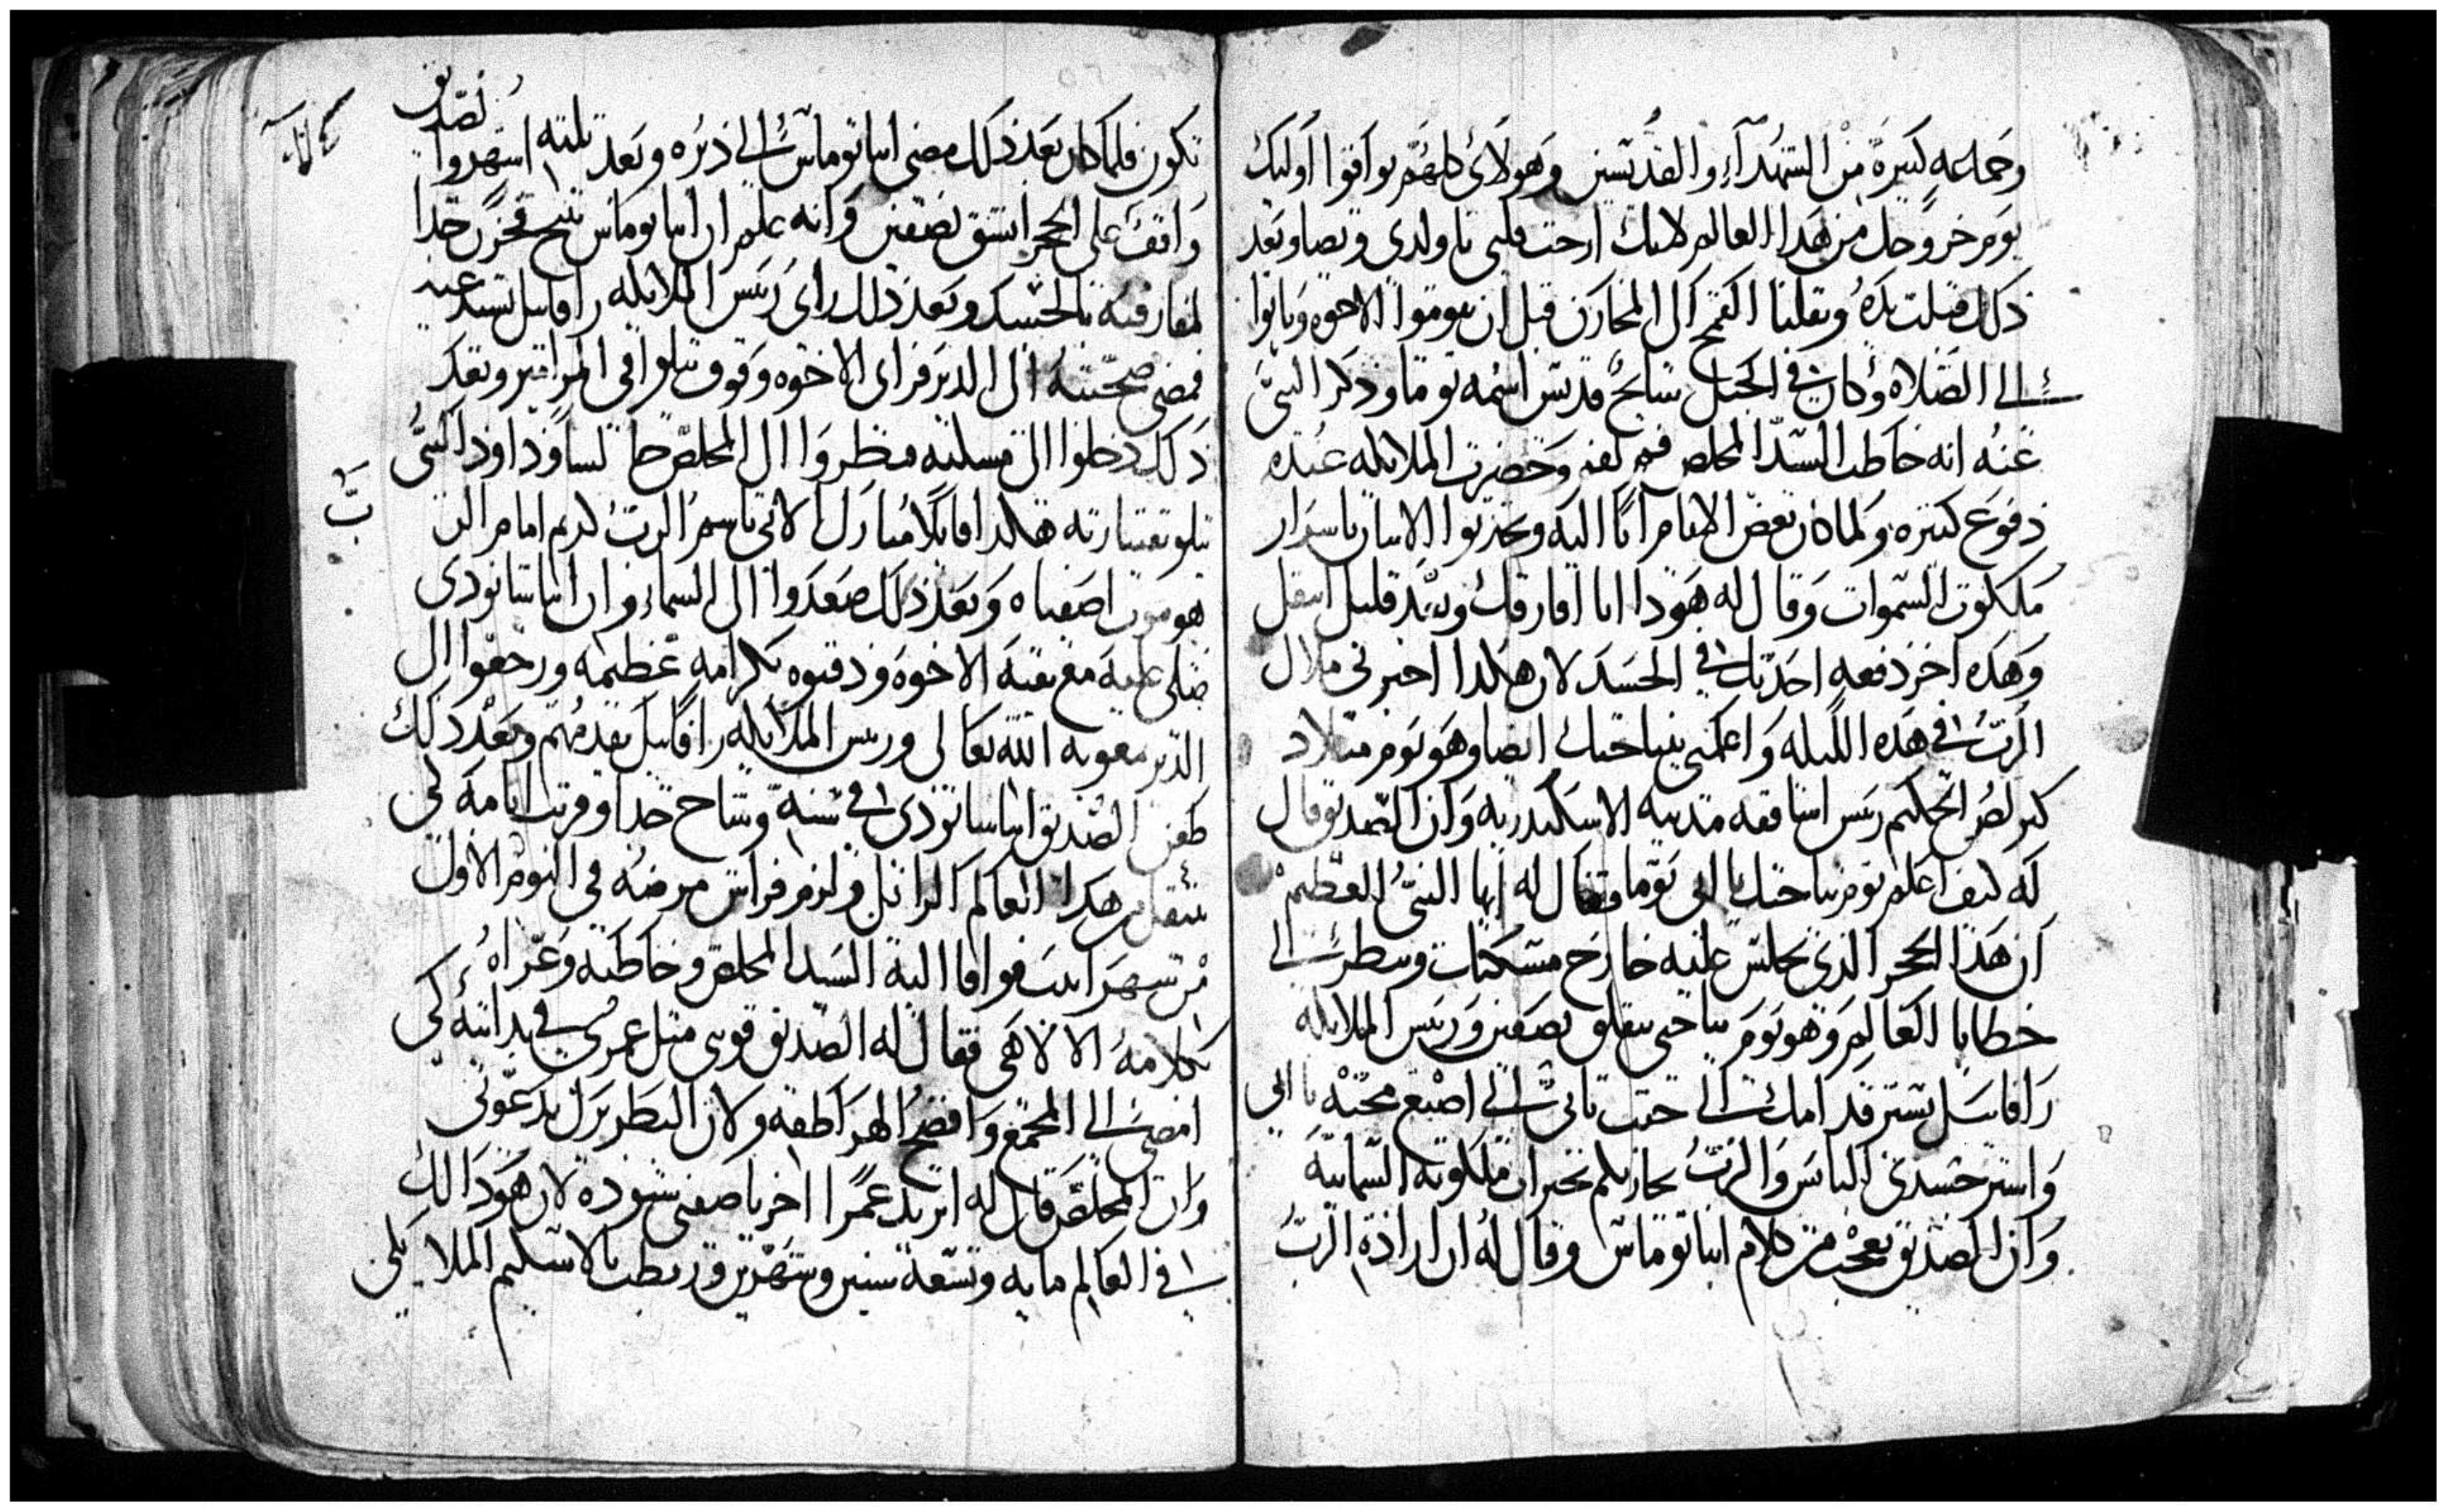 وجماعه كبيرة من الشهدآء والقديسين وهولائ كلهم يوافوا اوليك
يوم خروجك من هدا العالم لانك ارحت قلبى يا ولدى ويصا وبعد
ذلك قبلت يده ونقلنا القمح الى المخازن قبل ان يقوموا الاخوه وياتوا
الى الصلاه وكان فى الجبل سايح قديس اسمه توما وذكر النبى
عنه انه خاطب السيد المخلص فم لفم وحضرت الملايكه عنده
دفوع كتيره ولما كان بعض الايام اتا اليه ويحدثوا الاثنان باسرار
ملكوت السموات وقال له هودا انا افارقك وبعد قليل انتقل
وهده اخر دفعه احدثك فى الجسد لان هكدا اخبرنى ملاك
الرب فى هده الليله واعلمنى بنياحتك ايضا وهو يوم ميلاد
كيرلص الحكيم ريس اساقفه مدينه الاسكندريه وان الصديق قال
له كيف اعلم يوم نياحتك يا ابى توما فقال له ايها النبى العظيم
ان هدا الحجر الذى تجلس عليه خارج مسكنك وسطر الى
خطايا العالم وهو يوم نياحتى ينفلق نصفين وريس الملايكه
رافاييل يستر قدامك الى حيت تاتى الى اصنع محبه يا ابى
واستر جسدى الباس والرب يجازيكم بخيرات ملكوته السمايية
وان الصديق تعجب من كلام انبا توماس وقال له ان ارادة الرب
تكون فلما كان بعد ذلك مضى انبا توماس الى ديره وبعد تلته اشهر وا لصديق
واقف على الحجر انشق نصفين وانه علم ان انبا توماس تنيح فحزن جدا
لمفارقته بالجسد وبعد ذلك راى ريس الملايكه رافاييل
فمضى صحبته الى الدير فراى الاخوه وقوف يتلوا فى المزامير وبعد
ذلك دخلوا الى مسكنه فنظروا الى المخلص جالسا وداوود النبى
يتلو بقيتارته هكدا قايلا مبارك الاتى باسم الرب كريم امام الرب
هو موت اصفياه وبعد ذلك صعدوا الى السماء وان انبا شانودى
صلى عليه مع بقية الاخوه ودفنوه بكرامه عظيمه ورجعوا الى
الدير بمعونه الله تعالى وريس الملايكه رافاييل يقدمهم وبعد ذلك
طعن الصديق انبا شانودى فى سنه وشاخ جدا وقربت ايامه لكى
ينتقل من هدا العالم الزايل ولزم فراش مرضه فى اليوم الاول
من شهر ابيب فوافا اليه السيد المخلص وخاطبه وعزاه
بكلامه الالاهى فقال له الصديق قوينى مثل عمرى فى بدايته لكى
امضى الى المجمع وافضح الهراطقه ولان البطريرك يدعونى
وان المخلص قال له اتريد عمرا اخر يا صفيى شنوده لان هودا لك
فى العالم مايه وتسعة سنين وشهرين وربطت بالاسكيم الملايكى